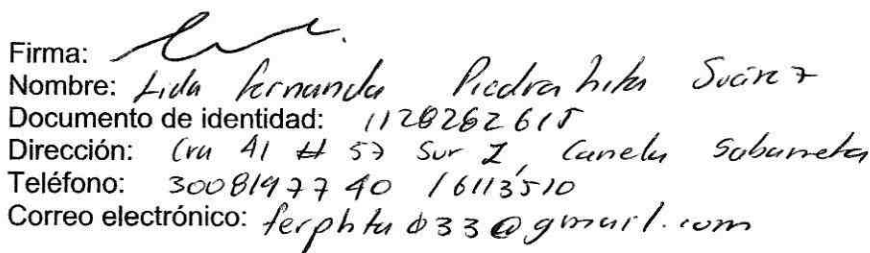 Firma:
Nombre: Lida fernanda Piedrahita Suárez
Documento de identidad: 1128262615
Dirección: Cra 41 # 57 Sur Z, Canela Sabaneta
Teléfono: 3008197740 / 6113510
Correo electrónico: ferphta033@gmail.com